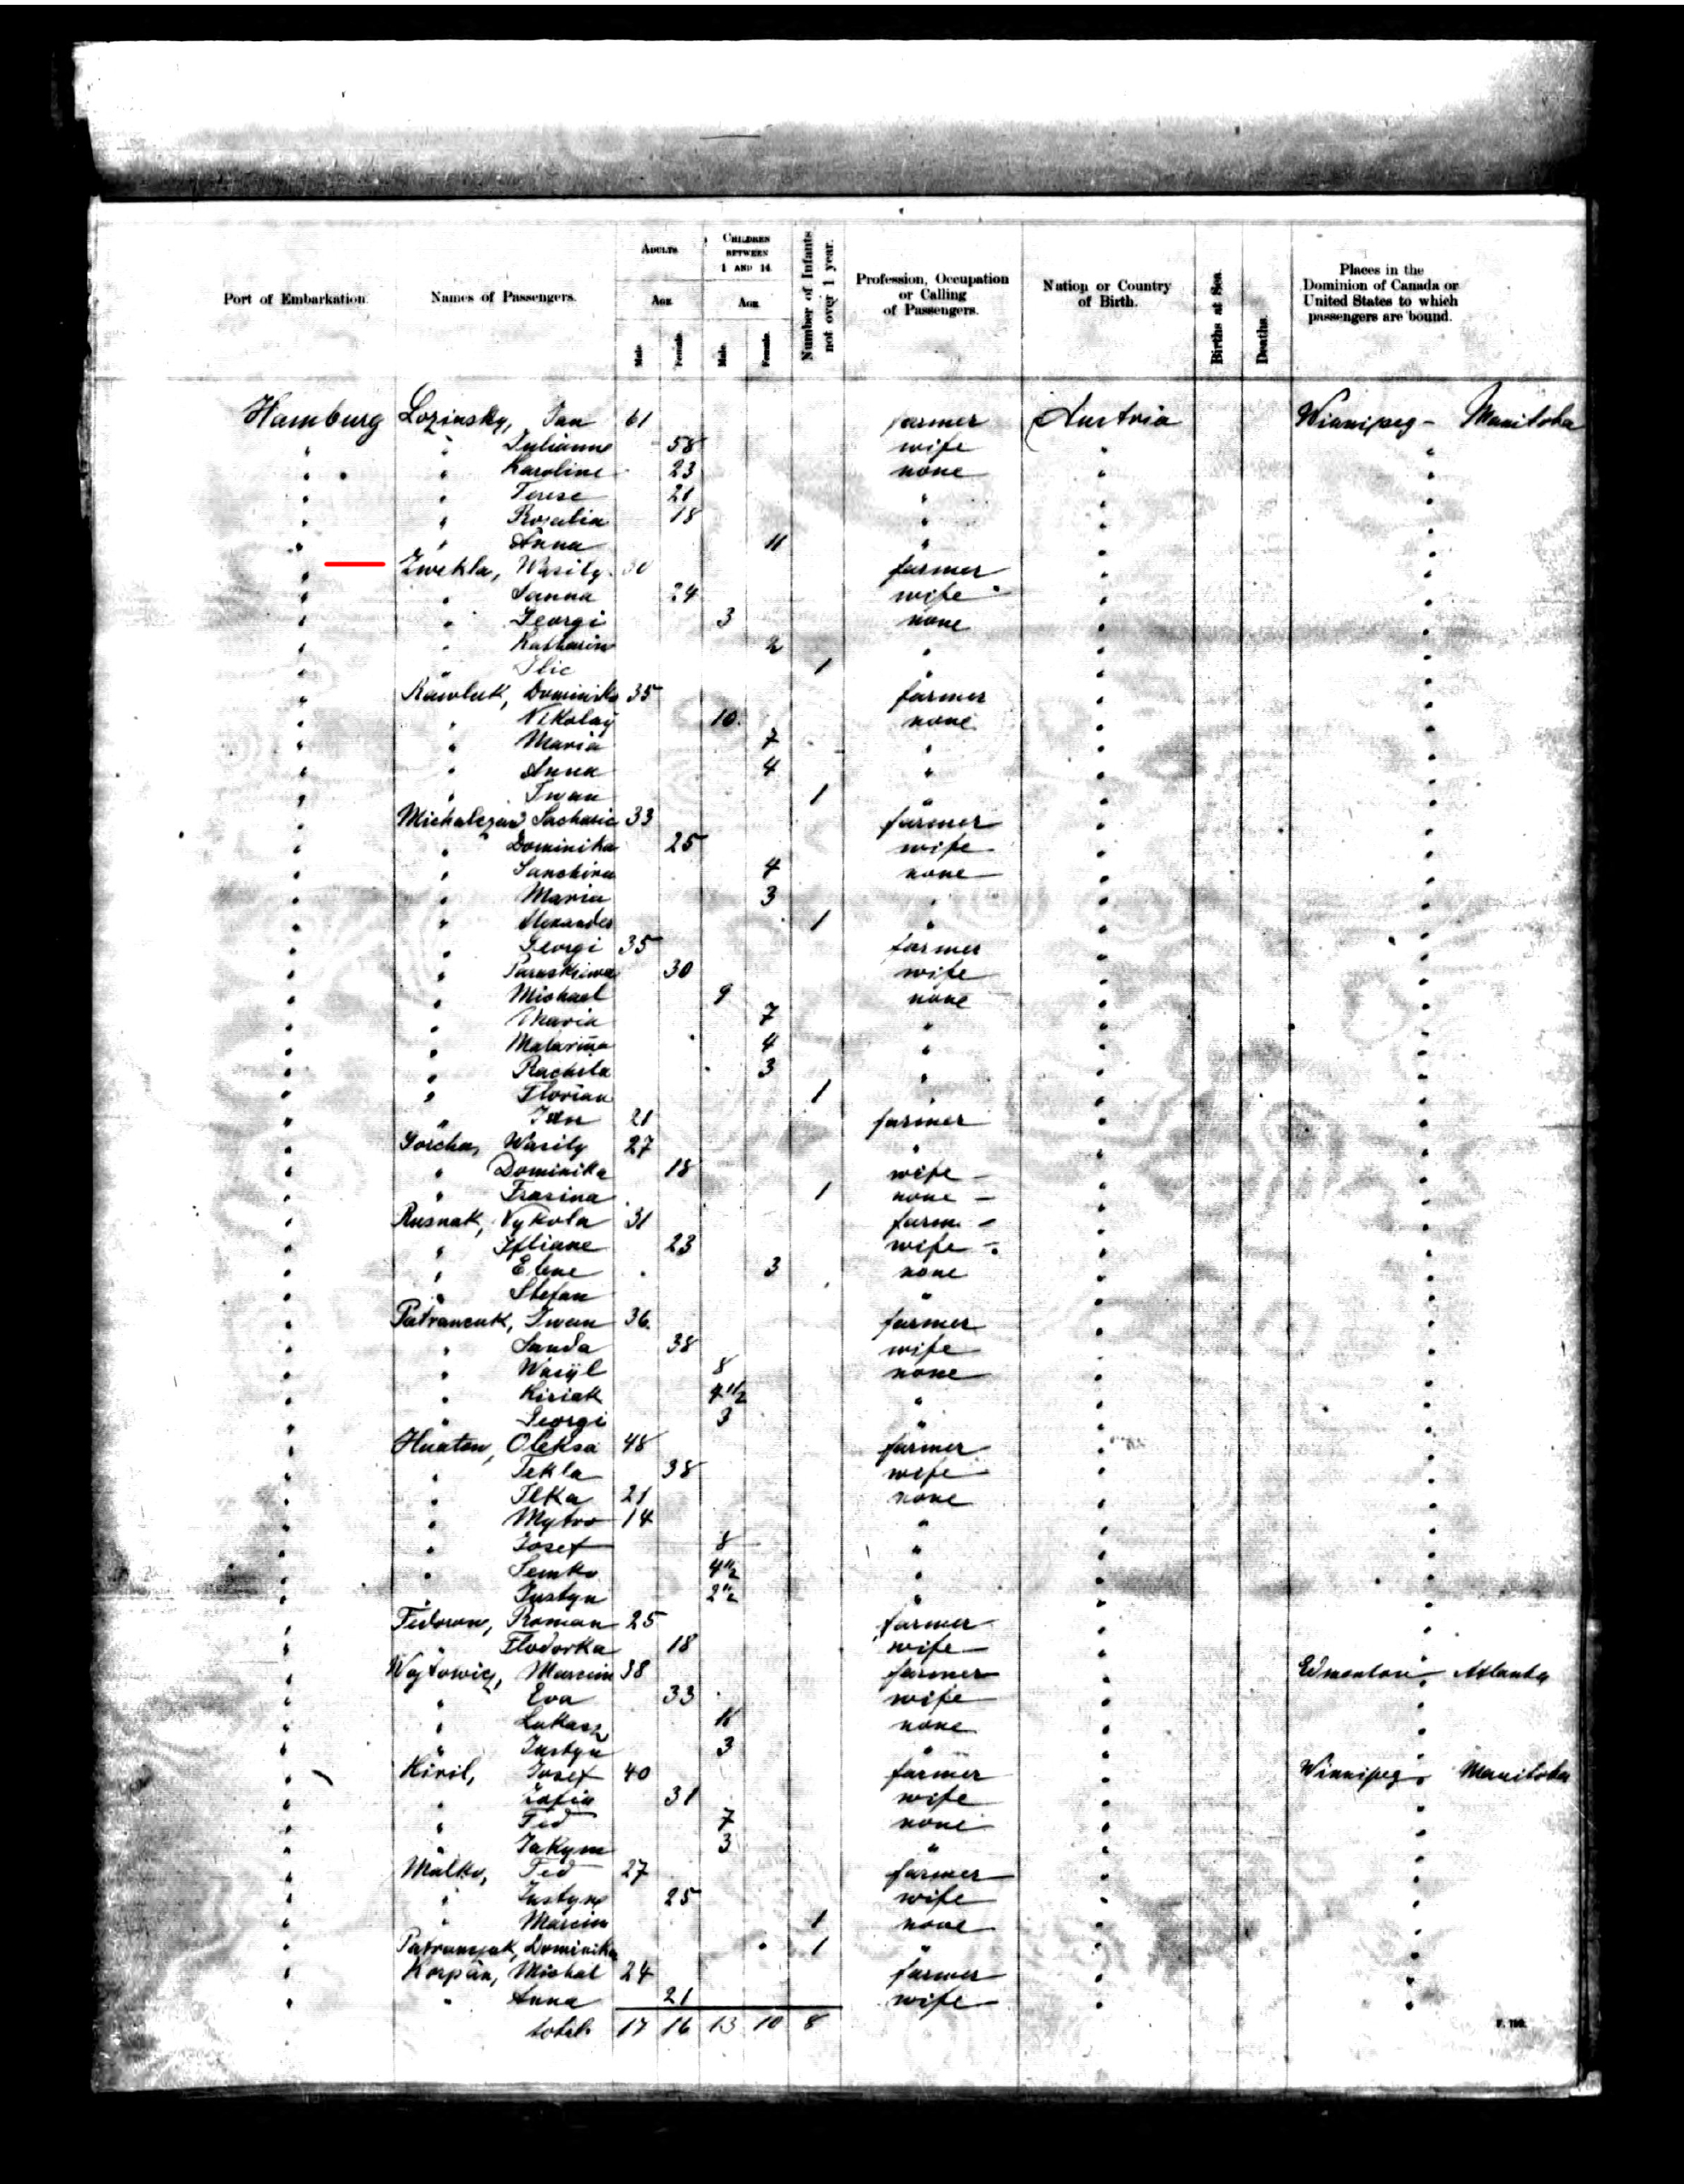 Port of Embarkation. Names of Passengers. Adults Age Male. Female. Children between 1 and 14. Age. Male. Female. Number of Infants not over 1 year. Profession, Occupation or Calling of Passengers. Nation or Country of Birth. Births at Sea. Deaths. Places in the Dominion of Canada or United States to which passengers are bound.
Hamburg Lozinsky, Jan 61 farmer Austria Winnipeg - Manitoba
" " Julianne 58 wife " "
" " Karoline 23 none " "
" " Terese 21 " " "
" " Rosalia 18 " " "
" " Anna 11 " " "
" Zwekla, Wasily 30 farmer " "
" " Sanna 24 wife " "
" " Georgi 3 none " "
" " Katharine 2 " " "
" " Ilie 1 " " "
" Rawluk, Dominika 35 farmer " "
" " Nikolay 10 none " "
" " Maria 7 " " "
" " Anna 4 " " "
" " Iwan 1 " " "
" Michalczan Sacharie 33 farmer " "
" " Dominika 25 wife " "
" " Sanchira 4 none " "
" " Maria 3 " " "
" " Alexander 1 " " "
" " Georgi 35 farmer " "
" " Paraskiwa 30 wife " "
" " Michael 9 none " "
" " Maria 7 " " "
" " Matarina 4 " " "
" " Rachila 3 " " "
" " Florian 1 " " "
" " Jan 21 farmer " "
" Gorcha, Wasily 27 " " "
" " Dominika 18 wife " "
" " Frasina 1 none " "
" Rusnak, Nykola 31 farm " "
" " Iftiane 23 wife " "
" " Elene 3 none " "
" " Stefan " " "
" Patrancuk, Iwan 36 farmer " "
" " Sanda 38 wife " "
" " Wasyl 8 none " "
" " Kiriak 4 1/2 " " "
" " Georgi 3 " " "
" Huatow, Oleksa 48 farmer " "
" " Tekla 38 wife " "
" " Ilka 21 none " "
" " Mytro 14 " " "
" " Josef 8 " " "
" " Semko 4 1/2 " " "
" " Justyn 2 1/2 " " "
" Fedorow, Roman 25 farmer " "
" " Flodorka 18 wife " "
" Wojtowicz, Marcin 38 farmer " Edmonton Atlanta
" " Eva 33 wife " "
" " Lukasz 11 none " "
" " Justyn 3 " " "
" Kiril, Josef 40 farmer " Winnipeg Manitoba
" " Zofia 31 wife " "
" " Fed 7 none " "
" " Jakym 3 " " "
" Malko, Fed 27 farmer " "
" " Justyna 25 wife " "
" " Marcin 1 none " "
" Patrancyak, Dominika 1 " " "
" Korpan, Michal 24 farmer " "
" " Anna 21 wife " "
total 17 16 13 10 8
F. 750.